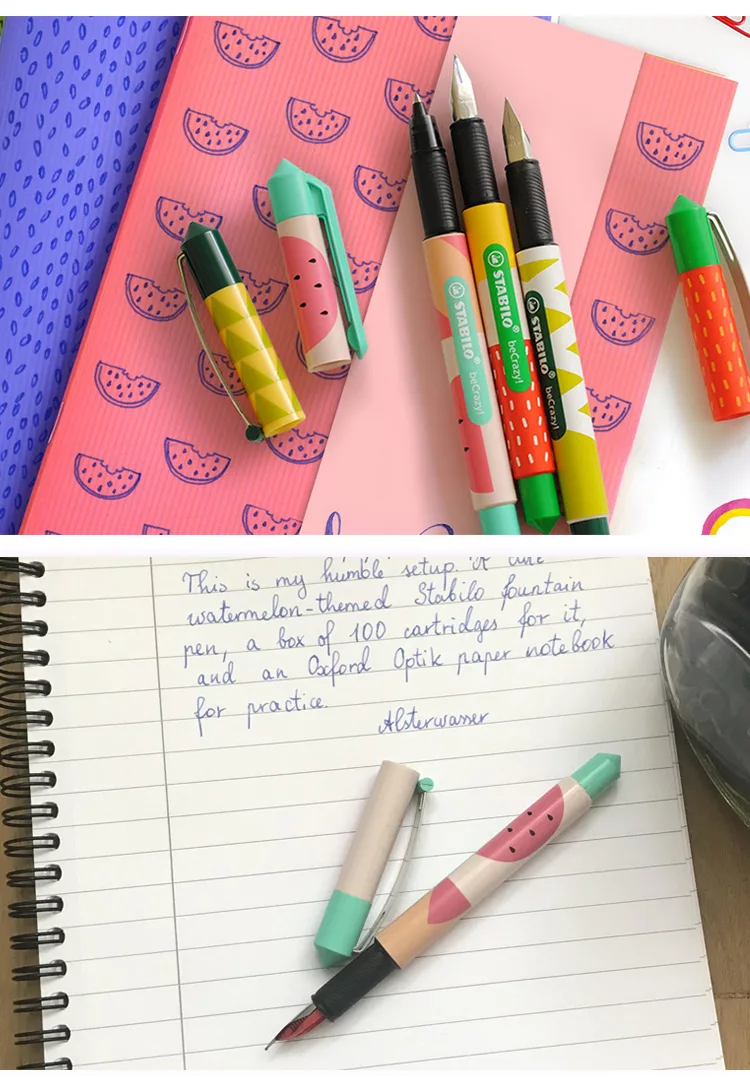 STABILO® beCrazy!
STABILO® beCrazy!
STABILO® beCrazy!
This is my humble setup. A cute
watermelon-themed Stabilo fountain
pen, a box of 100 cartridges for it,
and an Oxford Optik paper notebook
for practice.
Alsterwasser